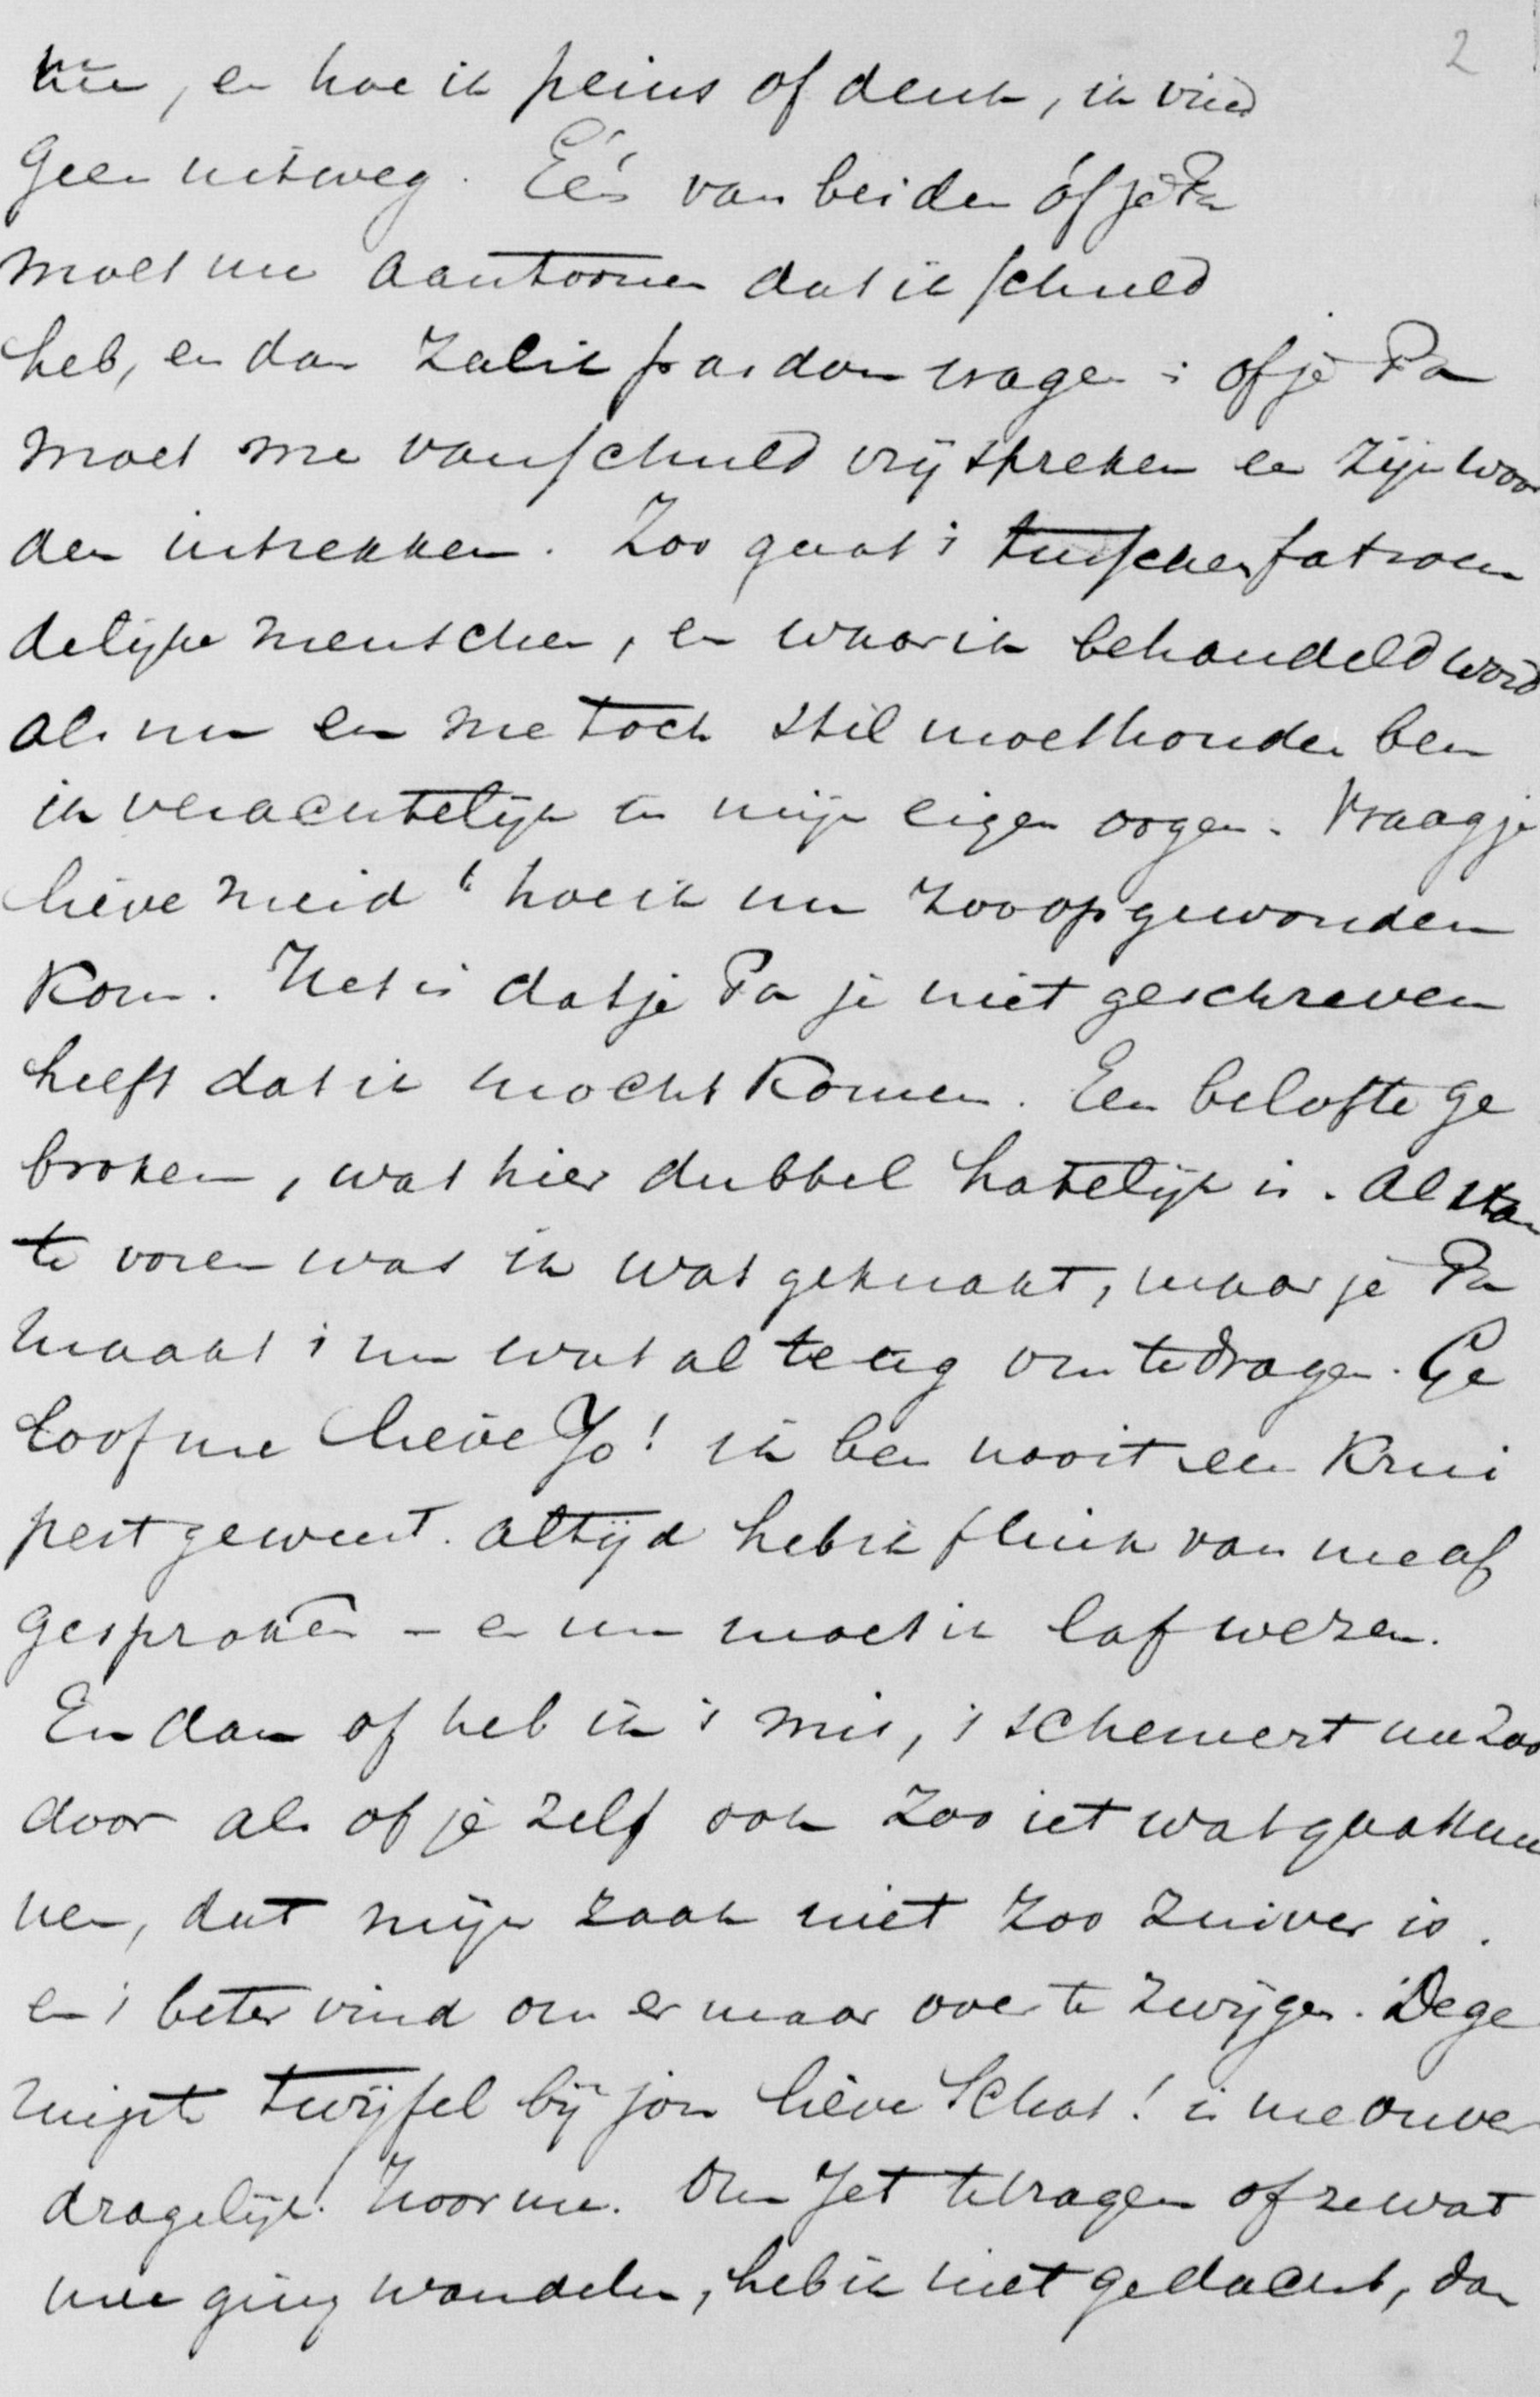 2
hie, en hoe ik peins of denk, ik vind
geen uitweg. Eén van beiden óf je Pa
moet me aantoonen dat ik schuld
heb, en dan zal ik pardon vragen; of je Pa
moet me van schuld vrijspreken en zijn woor
den intrekken. Zoo gaat 't tusschen fatsoen
delijke menschen, en waar ik behandeld word
als nu en me toch stil moet houden ben
ik verachtelijk in mijn eigen oogen. Vraag je
lieve meid! hoe ik nu zoo opgewonden
kom. Het is dat je Pa je niet geschreven
heeft dat ik mocht komen. Een belofte ge
broken, wat hier dubbel hatelijk is. Al
te voren was ik wat geknakt, maar je Pa
maakt 't nu wat al te erg om te dragen. Ge
loof me lieve Jo! ik ben nooit een krui
pert geweest. altijd heb ik flink van me af
gesproken – en nu moet ik laf wezen.
En dan of heb ik 't mis, 't schemert me zoo
door als of je zelf ook zoo iet wat gaat
nen, dat mijn zaak niet zoo zuiver is.
en 't beter vind om er maar over te zwijgen. De ge
ringste twijfel bij jou lieve Schat! is me onver
dragelijk. Hoor me. Om Jet te vragen of ze wat
mee ging wandelen, heb ik niet gedacht, dan